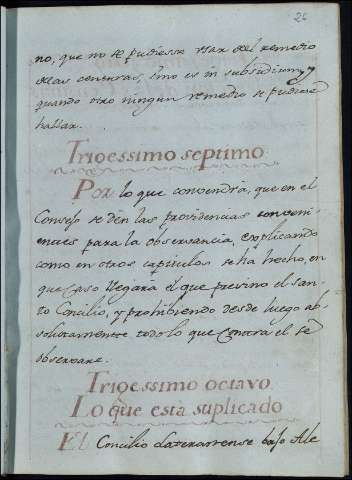 26
no, que no se pudiesse usar del remedio
delas censuras, sino es in subsidium, y
quando otro ningun remedio se pudiese
hallar.
Trigessimo septimo
Por lo que convendria, que en el
Consejo se den las providencias conveni-
entes para la observancia, explicando
como en otros capitulos se ha hecho, en
que caso llegara el que previno el san-
to Concilio, y prohibiendo desde luego ab-
solutamente todo lo que contra el se
observare.
Trigessimo octavo
Lo que esta suplicado
El Concilio Lateranense bajo Ale